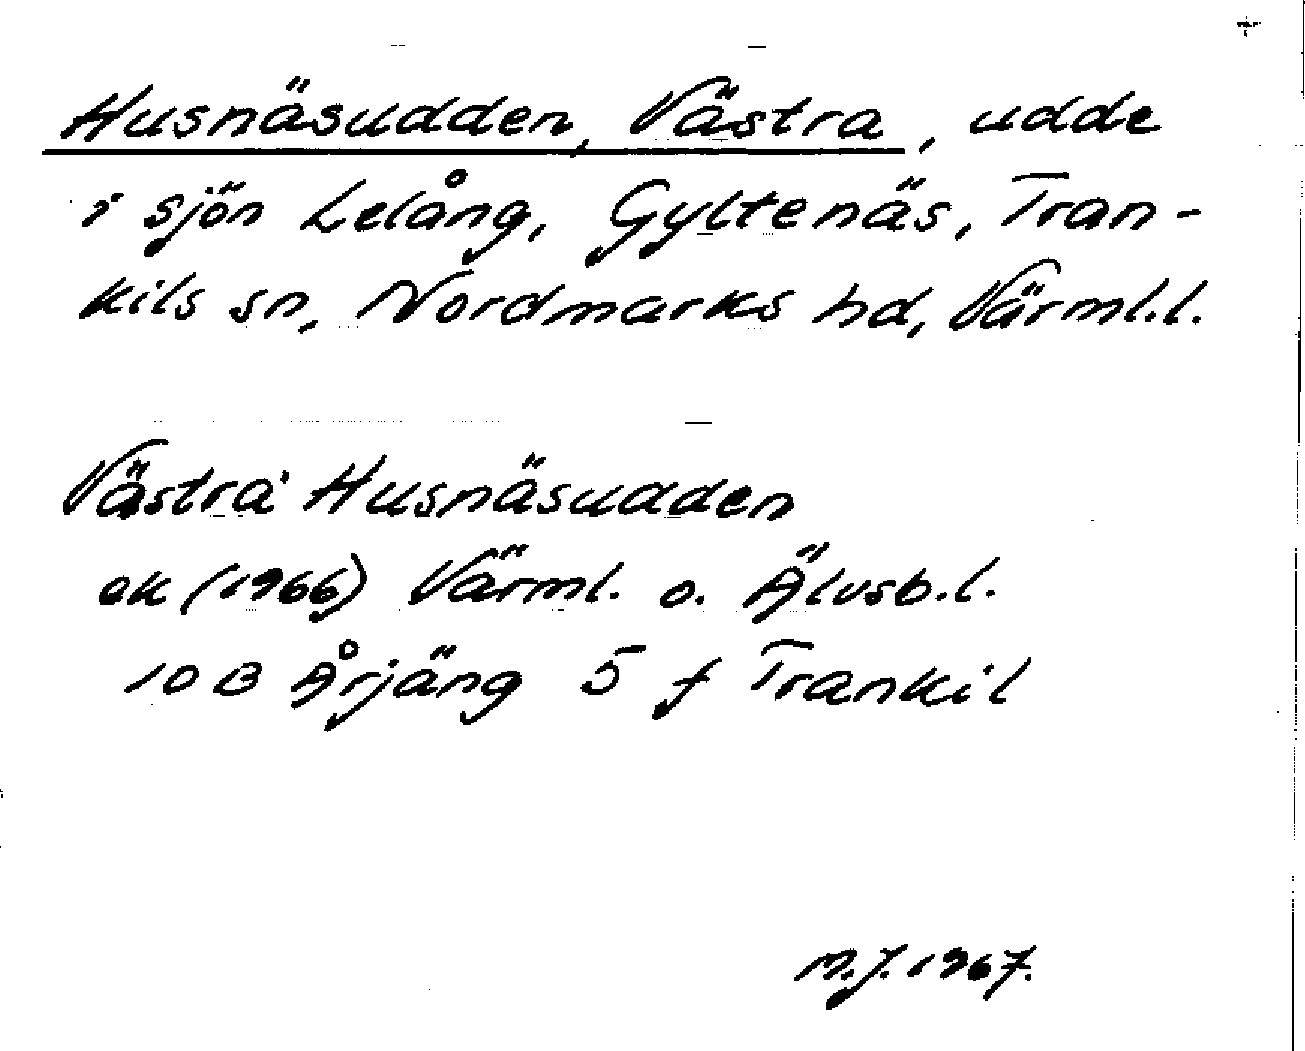 Husnäsudden, Västra, udde
i sjön Lelång, Gyltenäs, Tran-
kils sn, Nordmarks hd, Värml.l.
Västra Husnäsudden
ek (1966) Värml. o. Älvsb.l.
10 B Årjäng 5 f Trankil
M.J. 1967.